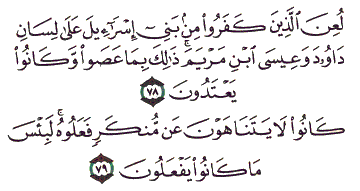 لُعِنَ الَّذِينَ كَفَرُوا۟ مِنۢ بَنِىٓ إِسْرَٰٓءِيلَ عَلَىٰ لِسَانِ
دَاوُۥدَ وَعِيسَى ٱبْنِ مَرْيَمَ ۚ ذَٰلِكَ بِمَا عَصَوا۟ وَّكَانُوا۟
يَعْتَدُونَ ٧٨
كَانُوا۟ لَا يَتَنَاهَوْنَ عَن مُّنكَرٍ فَعَلُوهُ ۚ لَبِئْسَ
مَا كَانُوا۟ يَفْعَلُونَ ٧٩